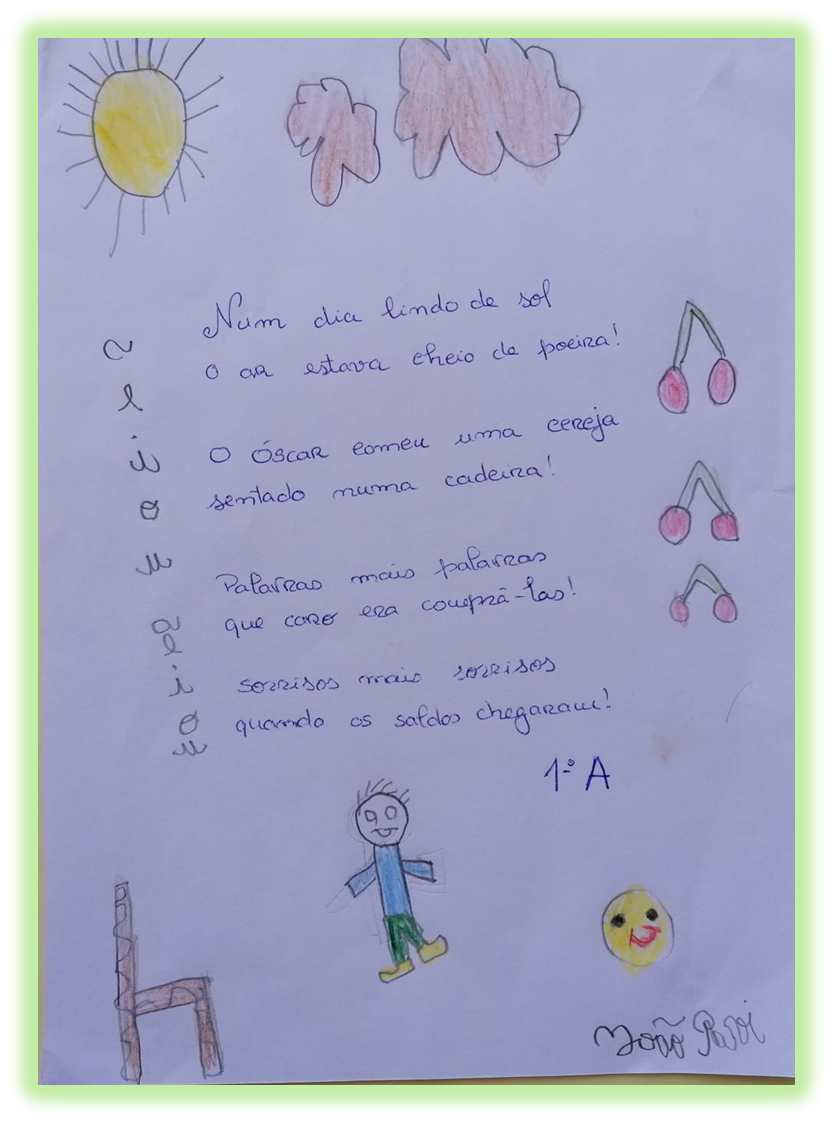 Num dia lindo de sol
o ar estava cheio de poeira!
O Óscar comeu uma cereja
sentado numa cadeira!
Palavras mais palavras
que caro era comprá-las!
sorrisos mais sorrisos
quando os saldos chegaram!
1.º A
João